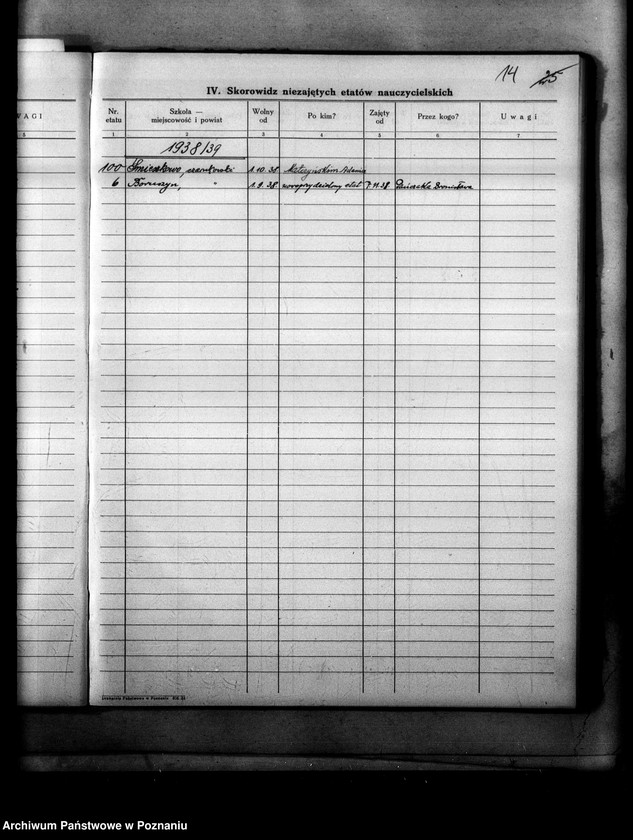 14 25
IV. Skorowidz niezajętych etatów nauczycielskich
WAGI
Nr. etatu
Szkoła — miejscowość i powiat
Wolny od
Po kim?
Zajęty od
Przez kogo?
Uwagi
1 2 3 4 5 6 7
1938/39
100 Śmieszkowo, czarnkowski 1.10.38
6 Boruszyn, " 1.9.38 nowoprzydzielony etat 7.11.38 Bronisława
Archiwum Państwowe w Poznaniu